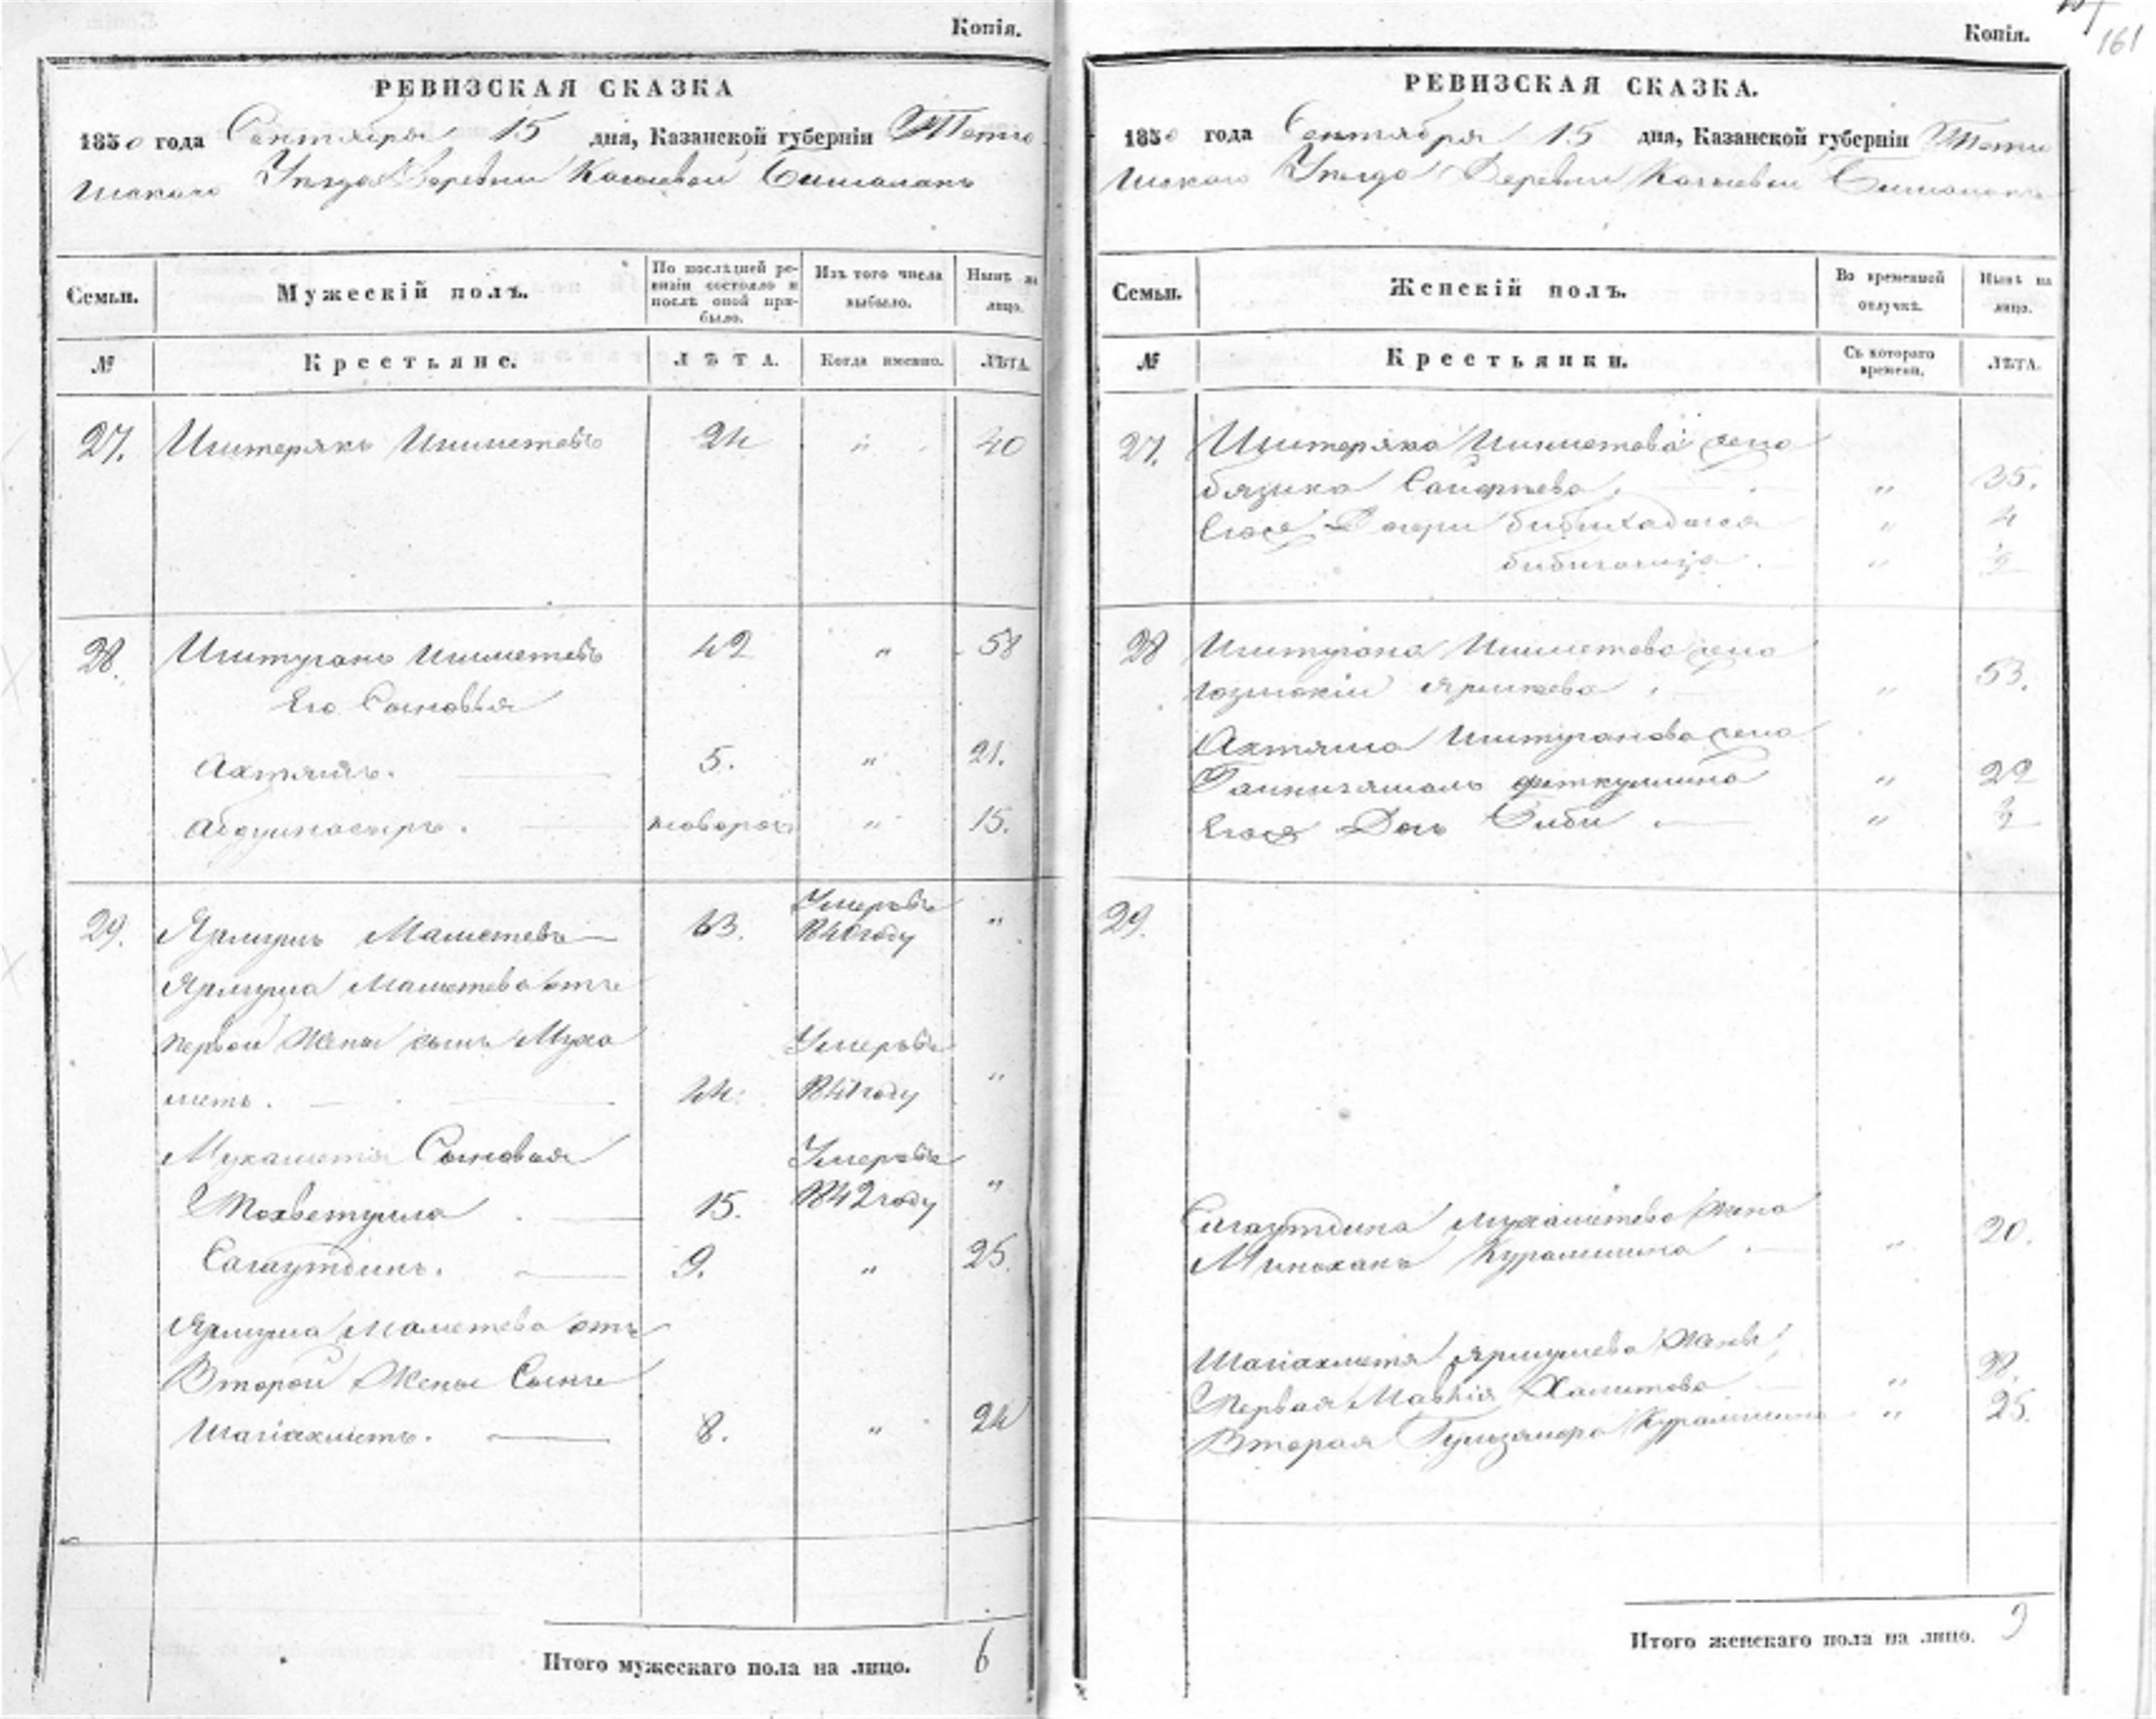 Копія.
РЕВИЗСКАЯ СКАЗКА
1850 года Сентября 15 дня, Казанской губерніи Тетю
шскаго Уезда Деревни
Семьи. Мужескій полъ. По послѣдней ре-визіи состояло и послѣ оной при-было. Изъ того числа выбыло. Нынѣ на лицо.
№ Крестьяне. ЛѢТА. Когда именно. ЛѢТА.
27. Иштерякъ Ишметевъ 24 " 40
28. Иштуганъ Ишметевъ 42 " 58
Его Сыновья
Ахтямъ. 5. " 21.
Абдулнасыръ. новорож " 15.
29. Ярмушъ Маметевъ 63. Умеръ въ 1840 году "
Ярмуша Маметева отъ
первой Жены сынъ Муха
метъ. 44. Умеръ въ 1841 году "
Мухаметя Сыновья
15. Умеръ въ 1842 году "
Сагаутдинъ. 9. " 25.
Ярмуша Маметева отъ
Второй Жены Сынъ
Шагіахметъ. 8. " 24
Итого мужескаго пола на лицо. 6
Копія.
161
РЕВИЗСКАЯ СКАЗКА.
1850 года Сентября 15 дня, Казанской губерніи Тетю
шскаго Уезда Деревни
Семьи. Женскій полъ. Во временной отлучкѣ. Нынѣ на лицо.
№ Крестьянки. Съ котораго времени. ЛѢТА.
27. Иштеряка Ишметева жена
" 35.
Его Дочери " 4
" ½
28 Иштугана Ишметева жена
" 53.
Ахтяма Иштуганова жена
" 22
Его Дочь Биби " ½
29.
Сагаутдина Мухаметева Жена
Миноханъ Курамшина " 20.
Шагіахметя Ярмушева Жены,
Первая Хаметева " 28.
Вторая Курамшина " 25.
Итого женскаго пола на лицо. 9